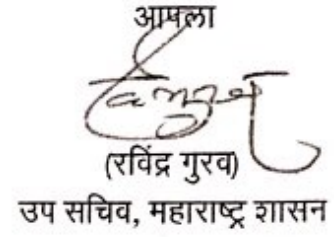 आपला
(रविंद्र गुरव)
उप सचिव, महाराष्ट्र शासन